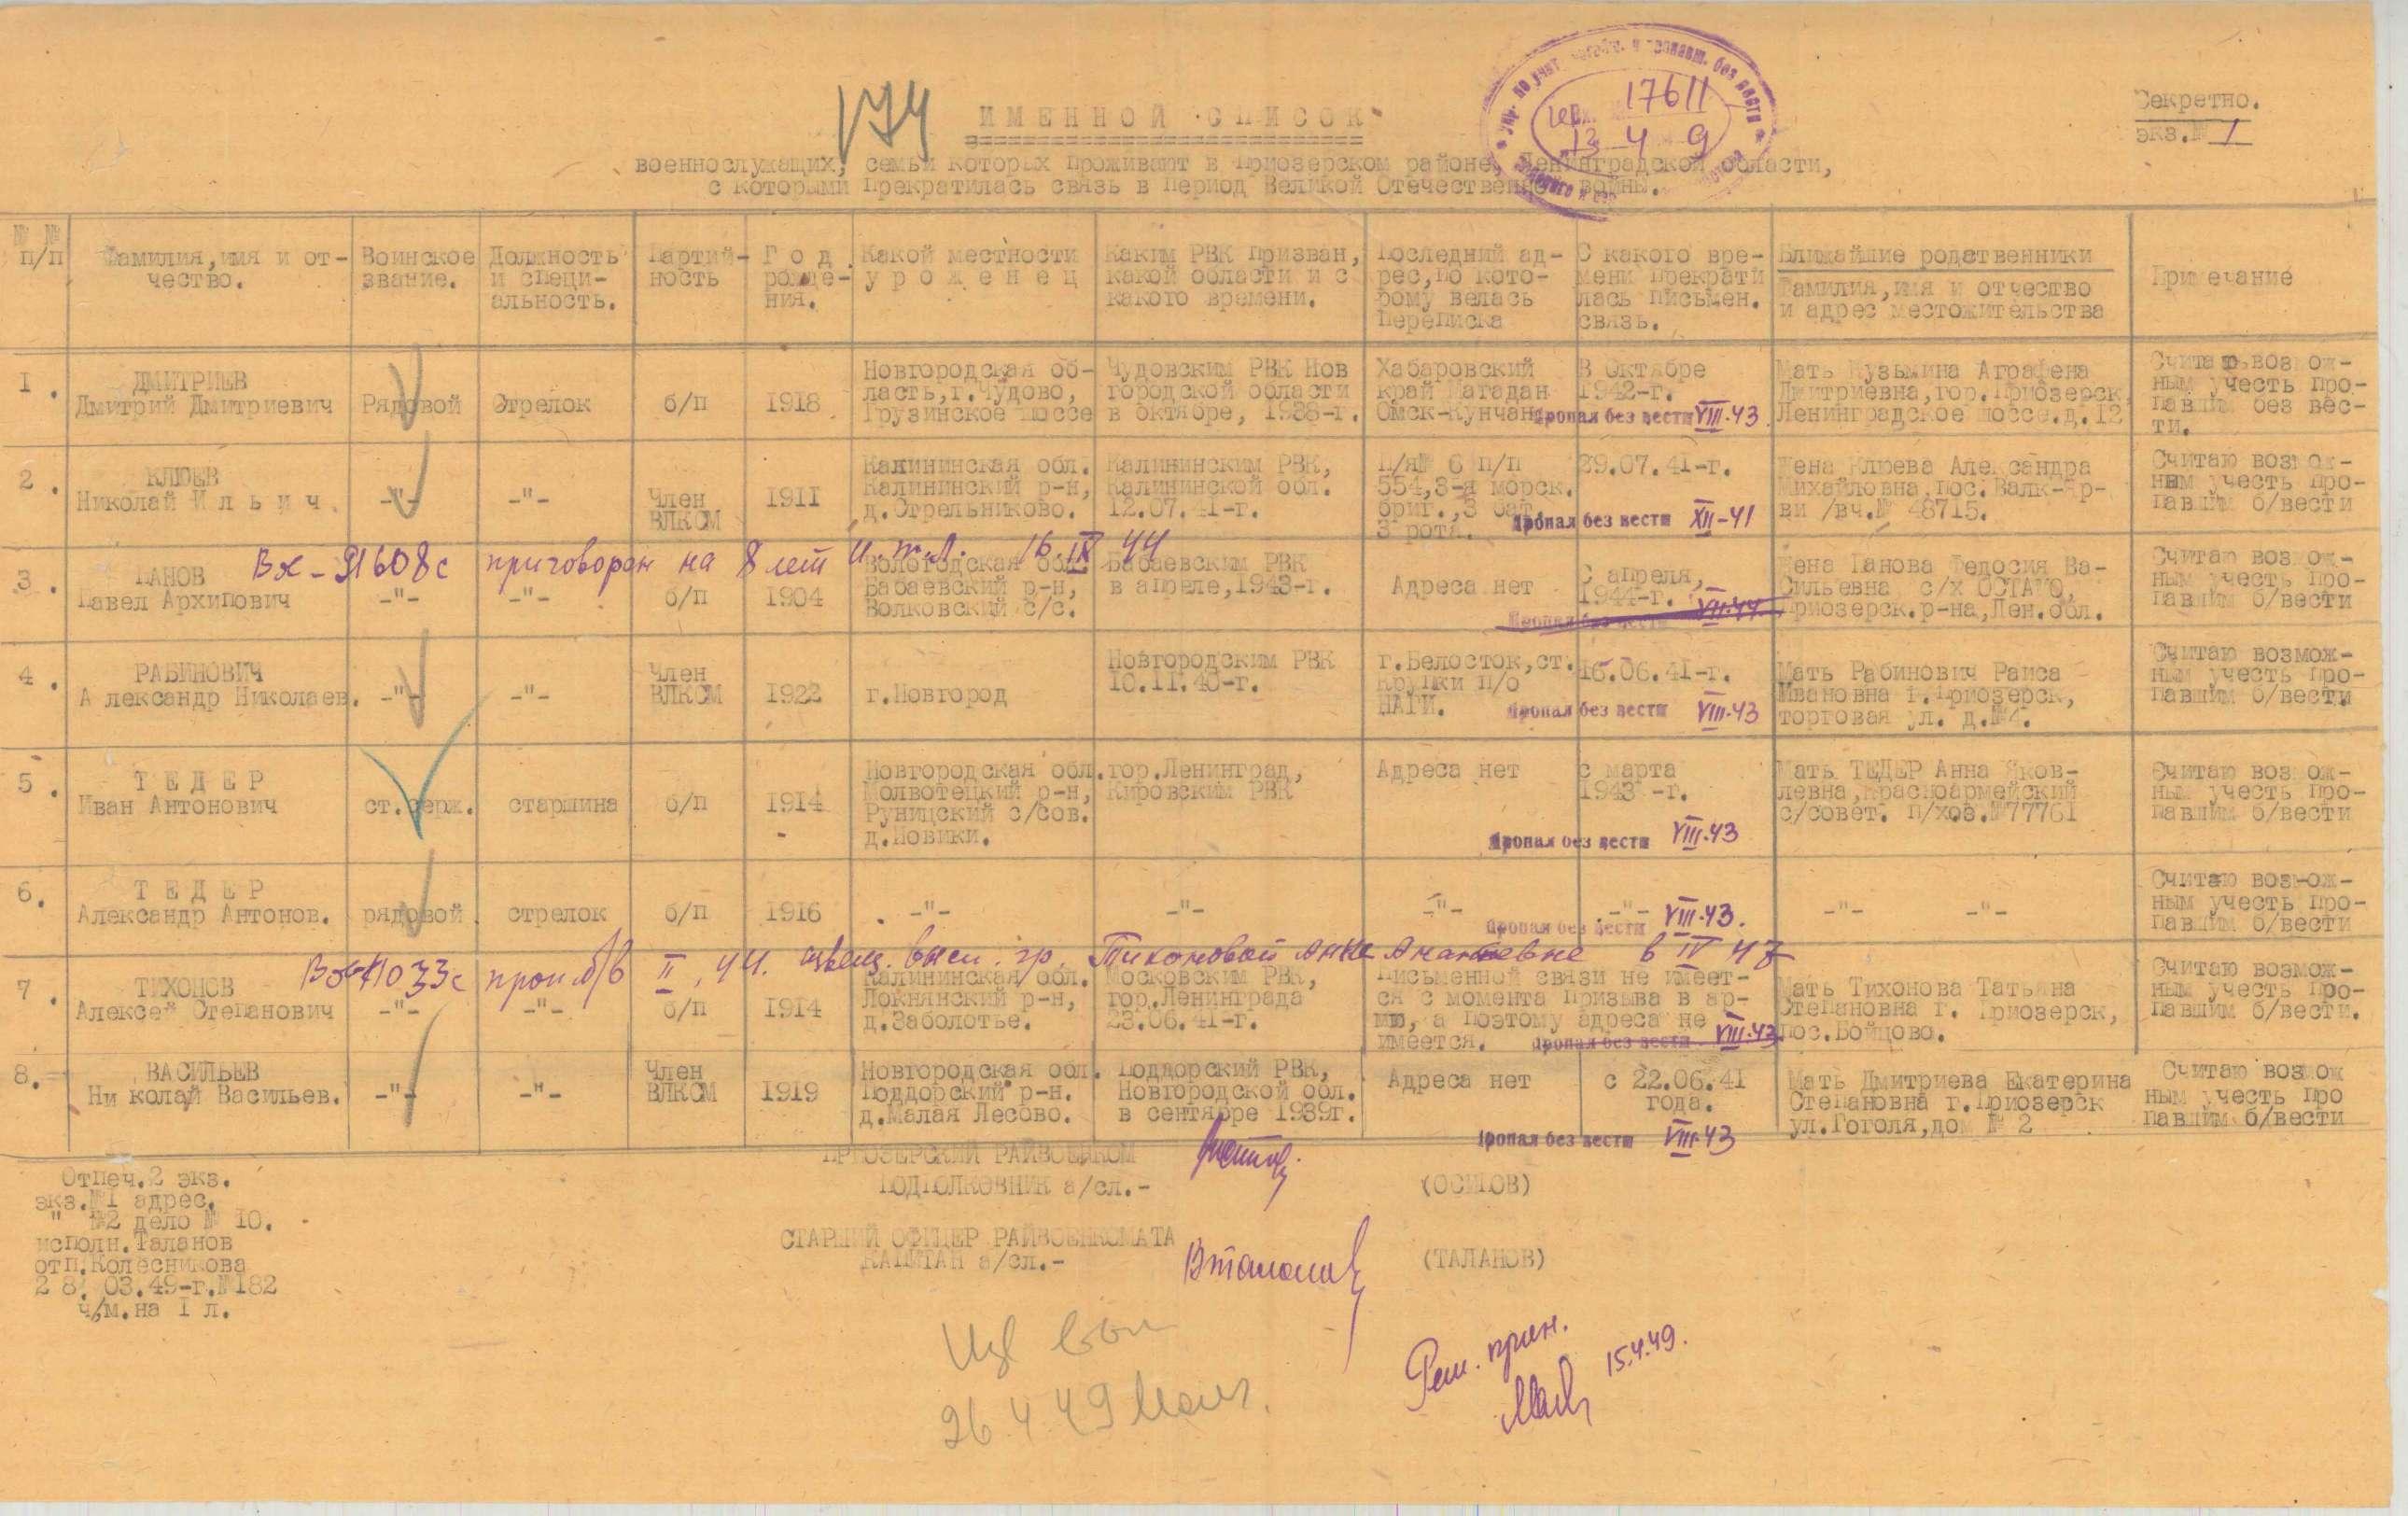 174
ИМЕННОЙ СПИСОК
Секретно.
экз.№ 1
17611
13 4 9
военнослужащих, семьи которых проживают в Приозерском районе, Ленинградской области,
с которыми прекратилась связь в период Великой Отечественной войны.
№ №
п/п
Фамилия,имя и от-
чество.
Воинское
звание.
Должность
и специ-
альность.
Партий-
ность
Год
рожде-
ния.
Какой местности
уроженец
Каким РВК призван,
какой области и с
какого времени.
Последний ад-
рес,по кото-
рому велась
переписка
С какого вре-
мени прекрати
лась письмен.
связь.
Ближайшие родственники
Фамилия,имя и отчество
и адрес местожительства
Примечание
1.
ДМИТРИЕВ
Дмитрий Дмитриевич
Рядовой
Стрелок
б/п
1918
Новгородская об-
ласть,г.Чудово,
Грузинское шоссе
Чудовским РВК Нов
городской области
в октябре, 1938-г.
Хабаровский
край Магадан
Омск-Кунчан
В Октябре
1942-г.
Пропал без вести VIII-43.
Мать Кузьмина Аграфена
Дмитриевна,гор.Приозерск
Ленинградское шоссе.д.12
Считаю возмож-
ным учесть про-
павшим без вес-
ти.
2.
КЛЮЕВ
Николай Ильич.
-"-
-"-
Член
ВЛКСМ
1911
Калининская обл.
Калининский р-н,
д.Стрельниково.
Калининским РВК,
Калининской обл.
12.07.41-г.
П/я№ 6 п/п
554,3-я морск.
бриг.,3 бат.
3 рота.
29.07.41-г.
Пропал без вести XII-41
Жена Клюева Александра
Михайловна,пос.Валк-Яр-
ви /вч.№ 48715.
Считаю возмож-
ным учесть про-
павшим б/вести
Вх-91608с приговорен на 8 лет И.т.л. 16.IX 44
3.
ПАНОВ
Павел Архипович
-"-
-"-
б/п
1904
Вологодская обл.
Бабаевский р-н,
Волковский с/с.
Бабаевским РВК
в апреле,1943-г.
Адреса нет
С апреля,
1944-г.
Пропал без вести VII-44
Жена Панова Федосия Ва-
сильевна с/х ОСТАМО,
Приозерск.р-на,Лен.обл.
Считаю возмож-
ным учесть про-
павшим б/вести
4.
РАБИНОВИЧ
Александр Николаев.
-"-
-"-
Член
ВЛКСМ
1922
г.Новгород
Новгородским РВК
10.11.40-г.
г.Белосток,ст.
Крупки п/о
ЦАГИ.
16.06.41-г.
Пропал без вести VIII-43
Мать Рабинович Раиса
Ивановна г.Приозерск,
торговая ул. д.№4.
Считаю возмож-
ным учесть про-
павшим б/вести
5.
ТЕДЕР
Иван Антонович
ст.серж.
старшина
б/п
1914
Новгородская обл.
Молвотецкий р-н,
Руницский с/сов.
д.Новики.
гор.Ленинград,
Кировским РВК
Адреса нет
с марта
1943 -г.
Пропал без вести VIII-43
Мать ТЕДЕР Анна Яков-
левна,Красноармейский
с/совет. п/хоз.№77761
Считаю возмож-
ным учесть про-
павшим б/вести
6.
ТЕДЕР
Александр Антонов.
рядовой
стрелок
б/п
1916
-"-
-"-
-"-
-"-
Пропал без вести VIII-43.
-"- -"-
Считаю возмож-
ным учесть про-
павшим б/вести
Вх41033с проп.б/в II.44. извещ. высл. гр. Тихоновой Анне Ананьевне в IV 47
7.
ТИХОНОВ
Алексей Степанович
-"-
-"-
б/п
1914
Калининская обл.
Локнянский р-н,
д.Заболотье.
Московским РВК,
гор.Ленинграда
23.06.41-г.
Письменной связи не имеет-
ся с момента призыва в ар-
мию, а поэтому адреса не
имеется.
Пропал без вести VIII-43
Мать Тихонова Татьяна
Степановна г. Приозерск,
пос.Бойцово.
Считаю возмож-
ным учесть про-
павшим б/вести.
8.
ВАСИЛЬЕВ
Николай Васильев.
-"-
-"-
Член
ВЛКСМ
1919
Новгородская обл.
Поддорский р-н.
д.Малая Лесово.
Поддорский РВК,
Новгородской обл.
в сентябре 1939г.
Адреса нет
с 22.06.41
года.
Пропал без вести VIII-43
Мать Дмитриева Екатерина
Степановна г.Приозерск
ул.Гоголя,дом № 2
Считаю возмож
ным учесть про
павшим б/вести
ПРИОЗЕРСКИЙ РАЙВОЕНКОМ
ПОДПОЛКОВНИК а/сл.-
(ОСИПОВ)
СТАРШИЙ ОФИЦЕР РАЙВОЕНКОМАТА
КАПИТАН а/сл.-
(ТАЛАНОВ)
Отпеч.2 экз.
экз.№1 адрес.
" №2 дело № 10.
исполн.Таланов
отп.Колесникова
28.03.49-г.№182
ч/м.на 1 л.
26.4.49
Реш. прин.
15.4.49.